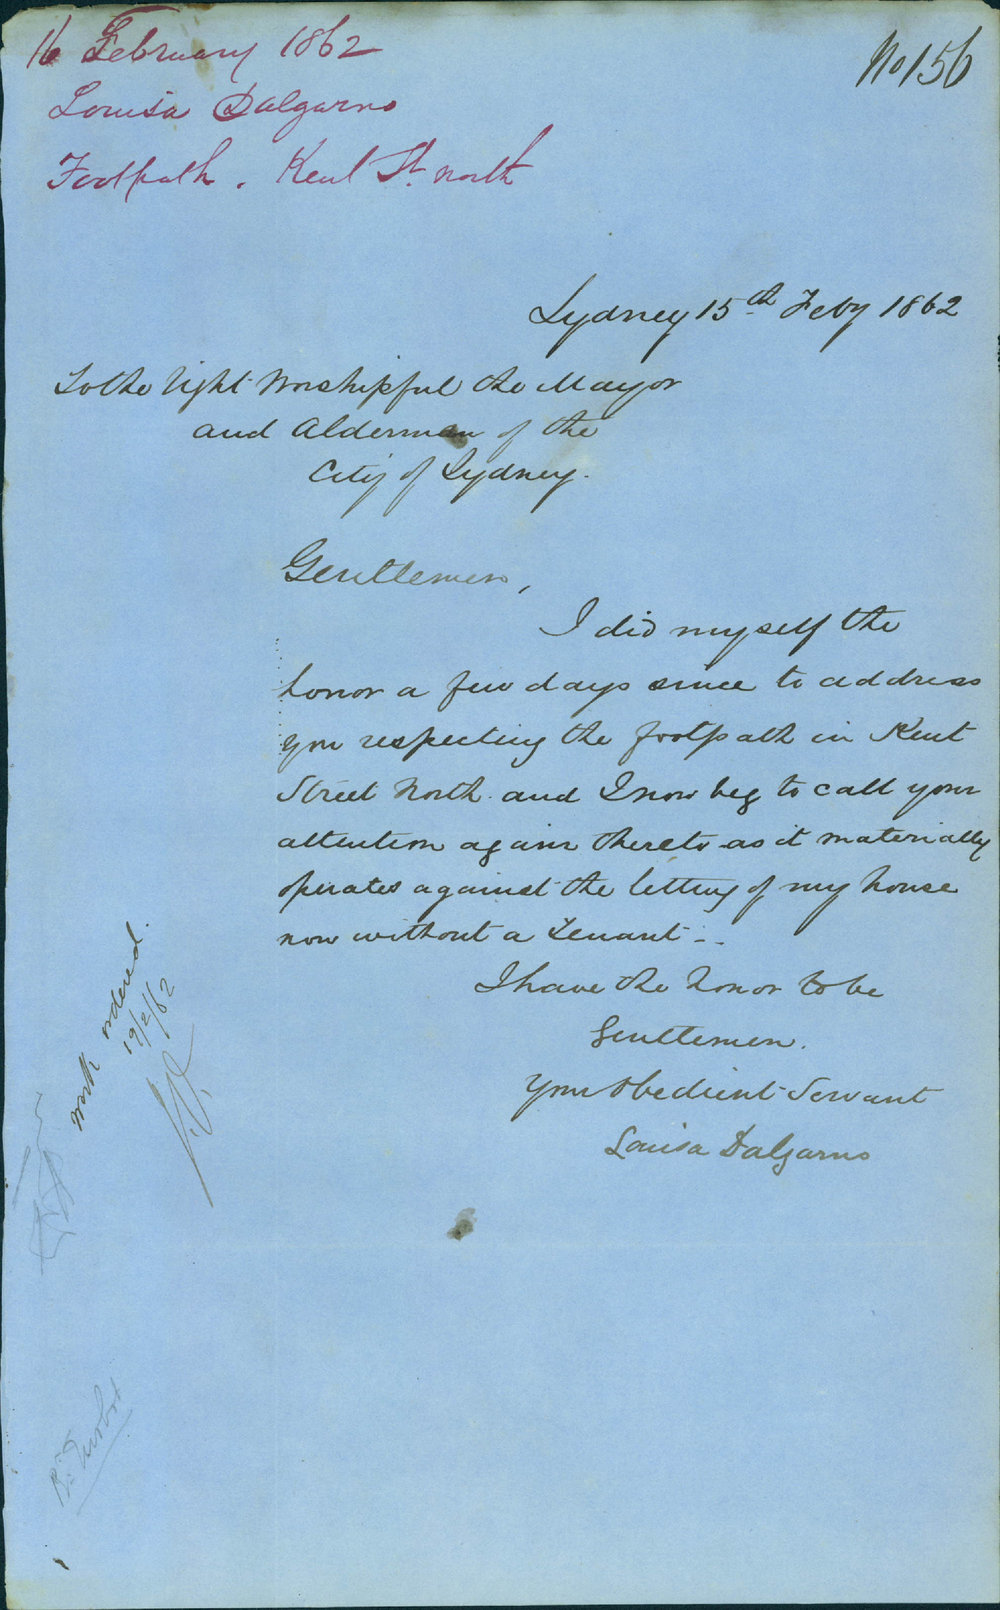 16 February 1862
Louisa Dalgarno
Footpath. Kent St. north
No 156
Sydney 15th Feby 1862
To the Right Worshipful the Mayor
and Alderman of the
City of Sydney.
Gentlemen,
I did myself the
honor a few days since to address
you respecting the footpath in Kent
Street North and I now beg to call your
attention again thereto as it materially
operates against the letting of my house
now without a Tenant..
I have the honor to be
Gentlemen.
Your Obedient Servant
Louisa Dalgarno
work ordered.
19/2/62